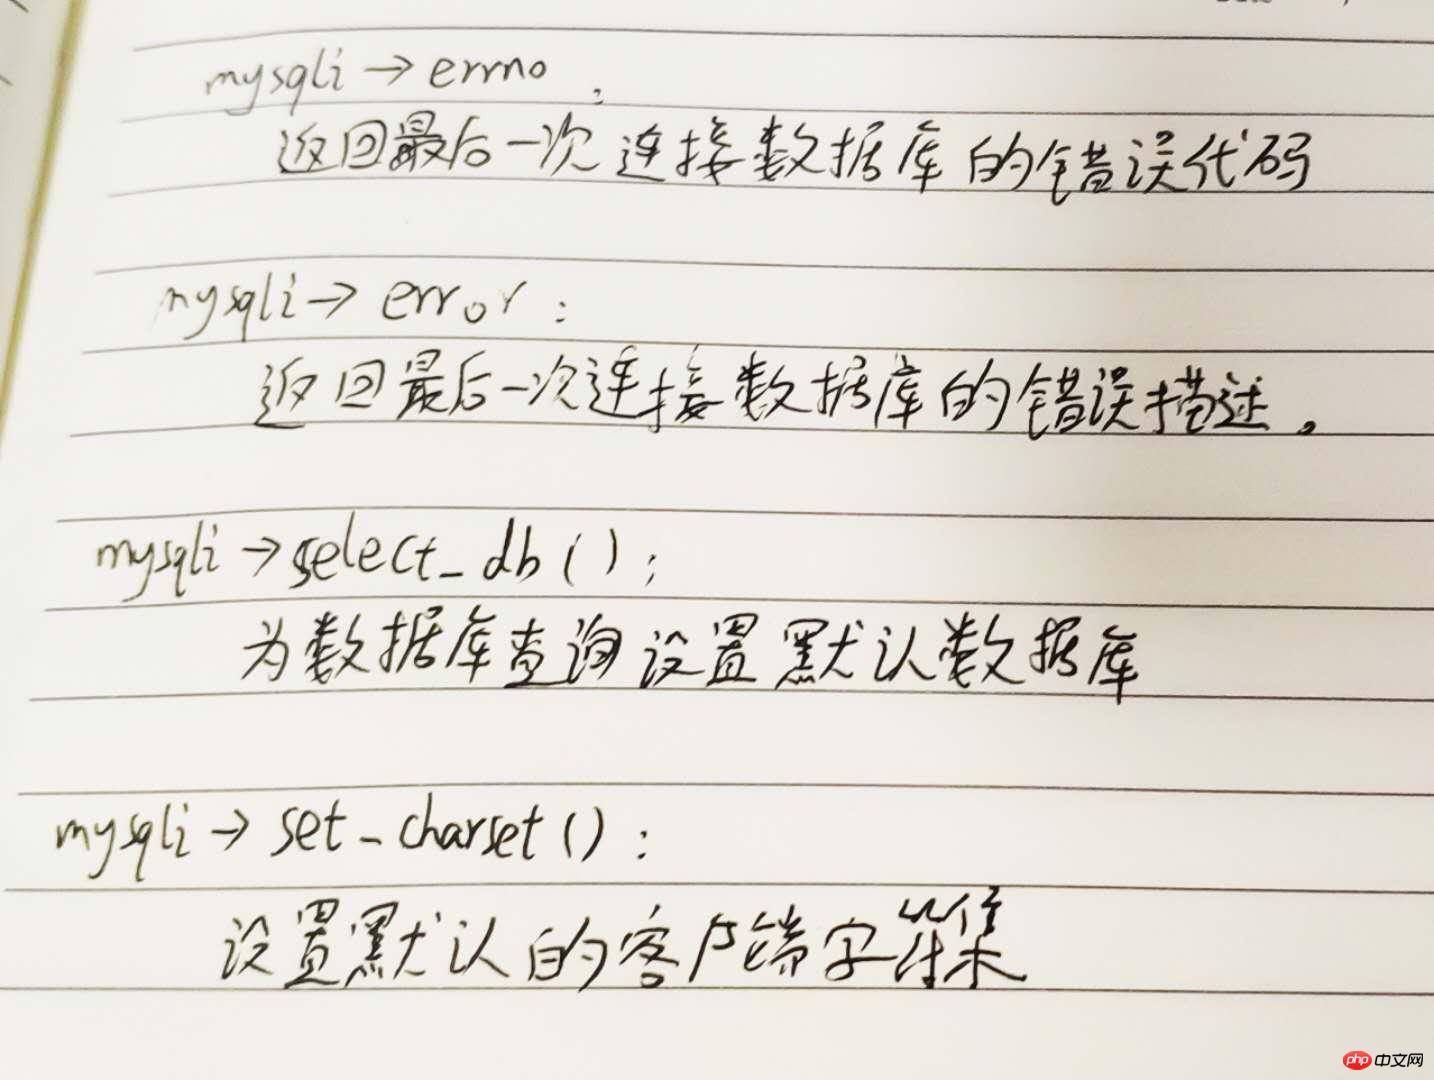 mysqli → errno :
返回最后一次连接数据库的错误代码
mysqli → error :
返回最后一次连接数据库的错误描述。
mysqli → select_db ( ) ;
为数据库查询设置默认数据库
mysqli → set_charset ( ) :
设置默认的客户端字符集
php 中文网